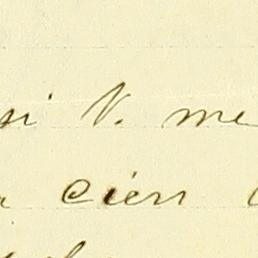 si V. me
cien